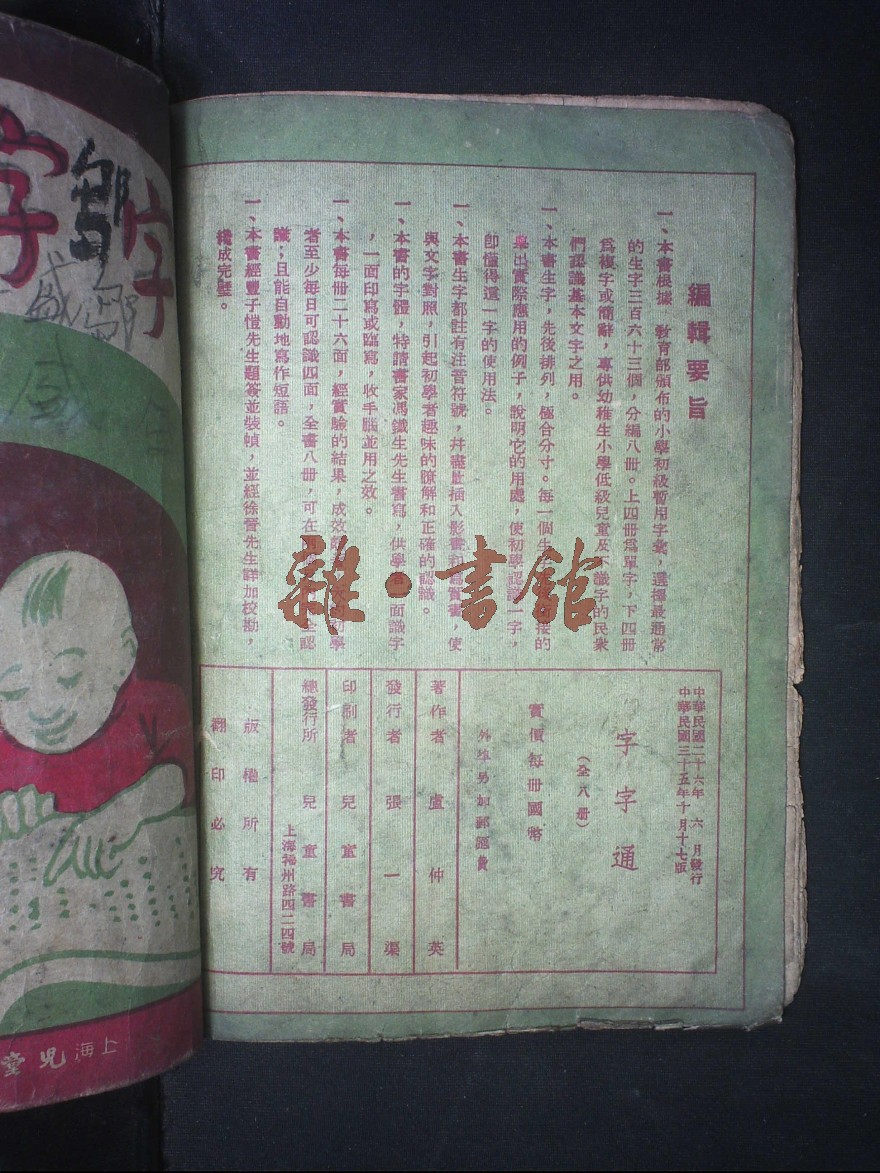 編輯要旨
一、本書根據　教育部頒布的小學初級暫用字彙，選擇最通常
的生字三百六十三個，分編八冊。上四冊爲單字，下四冊
爲複字或簡辭，專供幼稚生小學低級兒童及不識字的民衆
們認識基本文字之用。
一、本書生字，先後排列，極合分寸。每一個生接的
舉出實際應用的例子，說明它的用處，使初學認識一字，
卽懂得這一字的使用法。
一、本書生字都註有注音符號，幷盡量插入影畫和寫實畫，使
與文字對照，引起初學者趣味的瞭解和正確的認識。
一、本書的字體，特請書家馮鐵生先生書寫，供學者一面識字
，一面印寫或臨寫，收手腦並用之效。
一、本書每冊二十六面，經實驗的結果，成效初學
者至少每日可認識四面，全書八冊，可在全認
識；且能自動地寫作短語。
一、本書經豐子愷先生題簽並裝幀，並經徐晉先生詳加校勘，
纔成完璧。
中華民國二十六年六月發行
中華民國三十五年十月十七版
字字通
（全八冊）
實價每冊國幣
外埠另加郵匯費
著作者　盧仲英
發行者　張一渠
印刷者　兒童書局
總發行所　兒童書局
上海福州路四二四號
版權所有
翻印必究
雜·書館
字
字
鄒
盛
鄒
盛
上海兒童